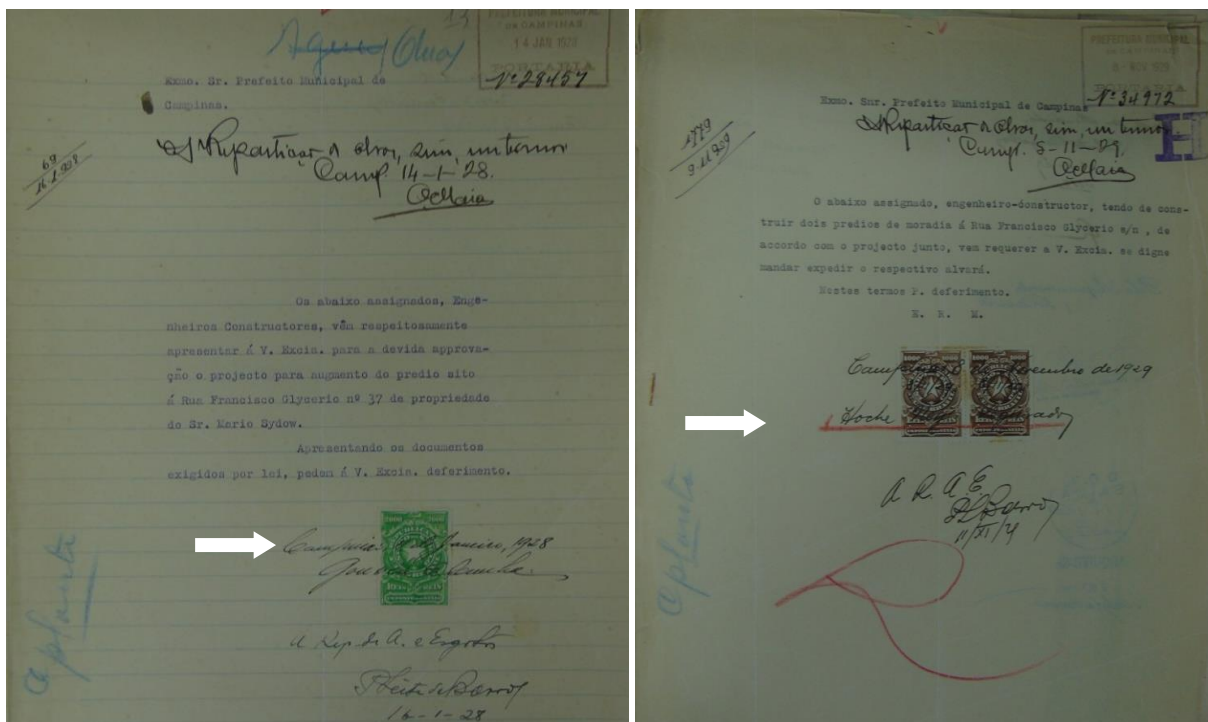 PREFEITURA MUNICIPAL
DE CAMPINAS
14 JAN 1928
PORTARIA
Nº 28457
Agua Obras
Exmo. Sr. Prefeito Municipal de
Campinas.
Á Repartição de obras, sim, em termos
Camp. 14-1-28.
69
16-1-928
Os abaixo assignados, Enge-
nheiros Constructores, vêm respeitosamente
apresentar á V. Excia. para a devida approva-
ção o projecto para augmento do predio sito
á Rua Francisco Glycerio nº 37 de propriedade
do Sr. Mario Sydow.
Apresentando os documentos
exigidos por lei, pedem á V. Excia. deferimento.
Campinas de Janeiro, 1928
A Rep. de A. e Esgotos
P Leite de Barros
16-1-28
a planta
PREFEITURA MUNICIPAL
DE CAMPINAS
NOV 1929
PORTARIA
Nº 34972
Exmo. Snr. Prefeito Municipal de Campinas
Á Repartição de obras, sim, em termos
Camp. 5-11-29.
1779
9-11-929
H
O abaixo assignado, engenheiro-constructor, tendo de cons-
truir dois predios de moradia á Rua Francisco Glycerio s/n , de
accordo com o projecto junto, vem requerer a V. Excia. se digne
mandar expedir o respectivo alvará.
Nestes termos P. deferimento.
E. R. M.
Campinas de Novembro de 1929
Hoche
A R A E
11/XI/
a planta